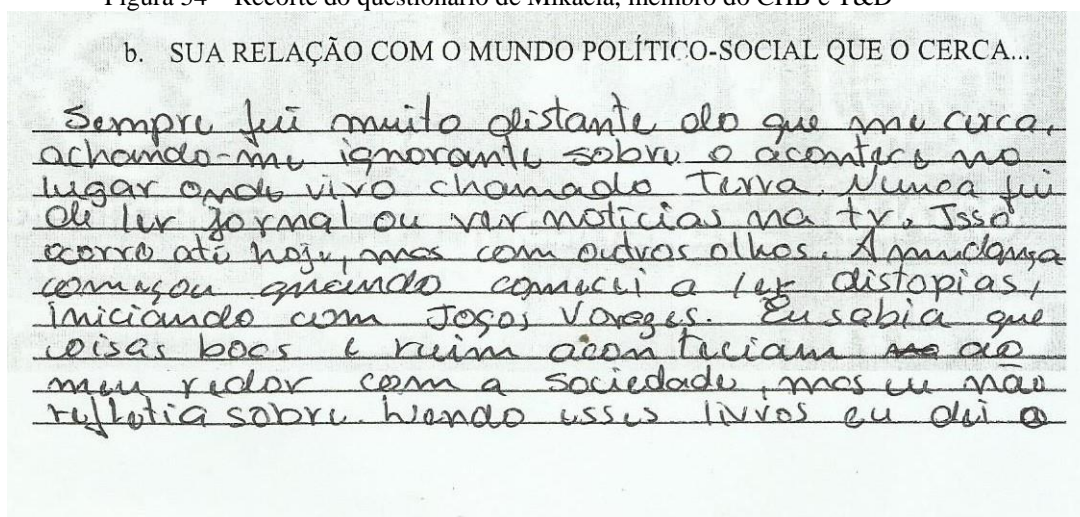 Figura 34 – Recorte do questionário de Mikaela, membro do CHB e T&D
b. SUA RELAÇÃO COM O MUNDO POLÍTICO-SOCIAL QUE O CERCA...
Sempre fui muito distante do que me cerca,
achando-me ignorante sobre o acontece no
lugar onde vivo chamado Terra. Nunca fui
de ler jornal ou ver notícias na tv. Isso
ocorre até hoje, mas com outros olhos. A mudança
começou quando comecei a ler distopias,
iniciando com Jogos Vorazes. Eu sabia que
coisas boas e ruim aconteciam ao
meu redor com a sociedade, mas eu não
refletia sobre. Lendo esses livros eu dei a